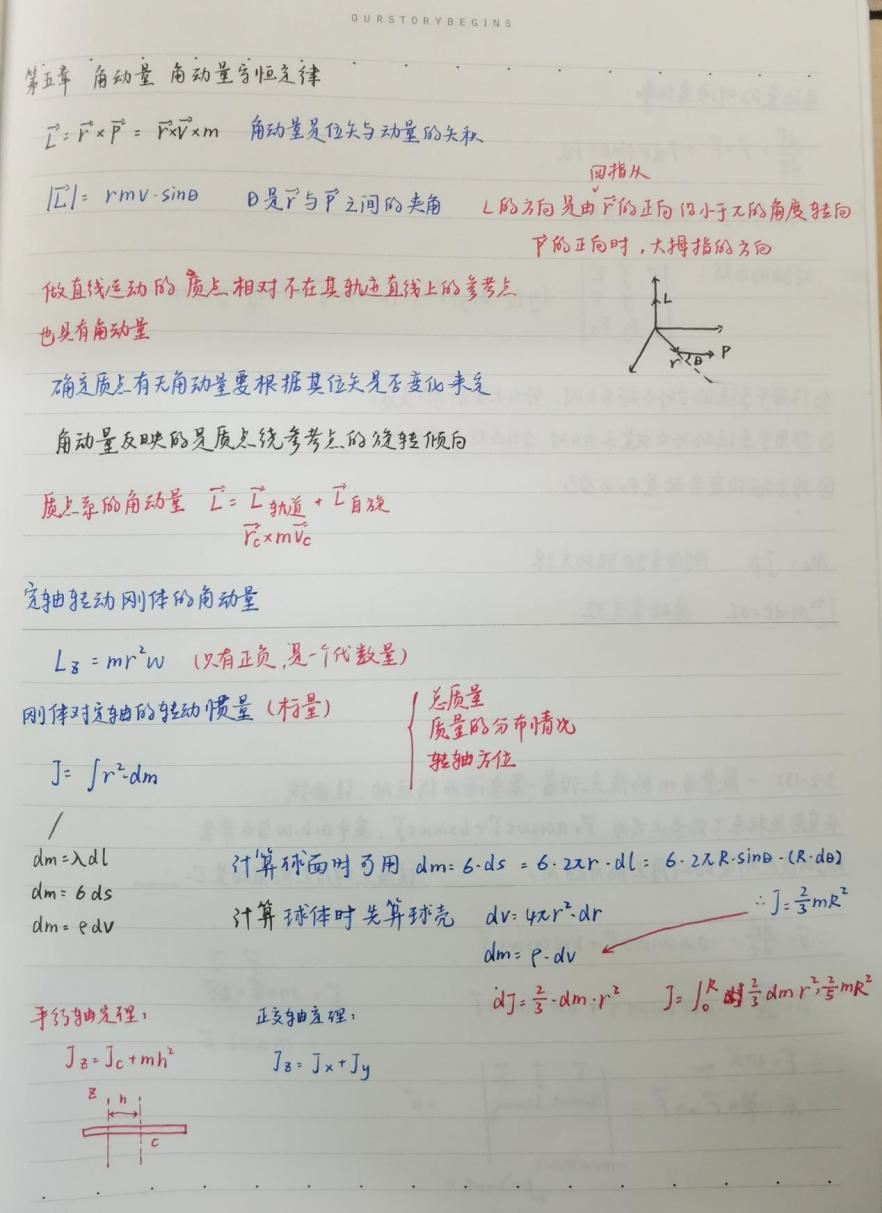 OURSTORYBEGINS
第五章 角动量 角动量守恒定律
L⃗ = r⃗ × P⃗ = r⃗×v⃗×m 角动量是位矢与动量的矢积
四指从
|L⃗| = rmv·sinθ θ是r⃗与P⃗之间的夹角 L的方向是由r⃗的正向沿小于π的角度转向
P⃗的正向时,大拇指的方向
做直线运动的质点相对不在其轨迹直线上的参考点
也具有角动量
L
r θ P
确定质点有无角动量要根据其位矢是否变化来定
角动量反映的是质点绕参考点的旋转倾向
质点系的角动量 L⃗ = L⃗轨道 + L⃗自旋
r⃗c×mv⃗c
定轴转动刚体的角动量
Lz = mr²w (只有正负,是一个代数量)
刚体对定轴的转动惯量(标量)
总质量
质量的分布情况
转轴方位
J = ∫r²·dm
dm = λdl 计算球面时可用 dm = 6·ds = 6·2πr·dl = 6·2πR·sinθ·(R·dθ)
dm = 6ds
∴J = 2/3 mR²
dm = ρdv 计算球体时先算球壳 dv = 4πr²·dr
dm = ρ·dv
dJ = 2/3·dm·r² J = ∫₀ᴿ 2/3 dm r² = 2/5 mR²
平行轴定理: 正交轴定理:
Jz = Jc + mh² Jz = Jx + Jy
z h
c